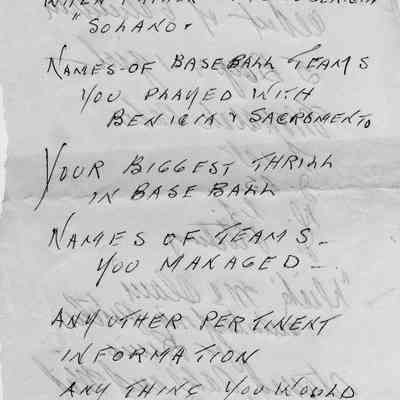 "SOLANO.
NAMES-OF BASEBALL TEAMS
YOU PLAYED WITH
BENICIA & SACROMENTO
YOUR BIGGEST THRILL
IN BASEBALL
NAMES OF TEAMS-
YOU MANAGED-
ANY OTHER PERTINENT
INFORMATION
ANY THING YOU WOULD